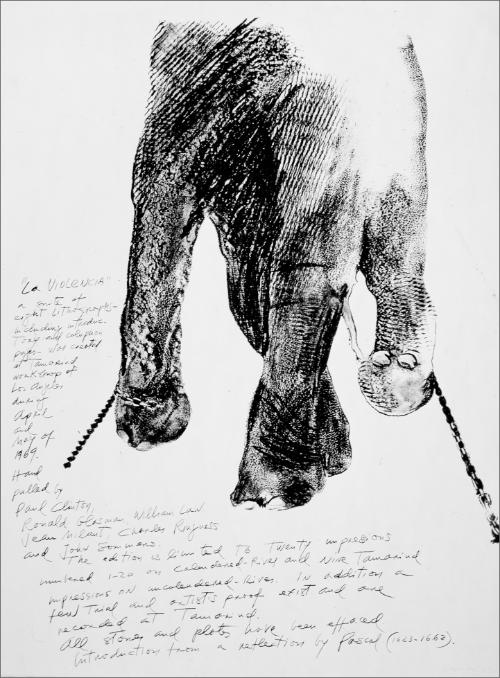 "La VIOLENCIA"
a suite of
eight Lithographs-
including introduc-
tory and colophon
pages was created
at Tamarind
workshop of
Los Angeles
during
April
and
May of
1969.
Hand
pulled by
Paul Clinton,
Ronald Glasman, William Law
Jean Milant, Charles Ringness
and John Sommers.
The edition is limited to twenty impressions
numbered 1-20 on calendered-Rives and Nine Tamarind
impressions on uncalendered-Rives. In addition a
few Trial and artist's proof exist and are
recorded at Tamarind.
All stones and photos have been effaced
Introduction from a reflection by Pascal (1623-1662).